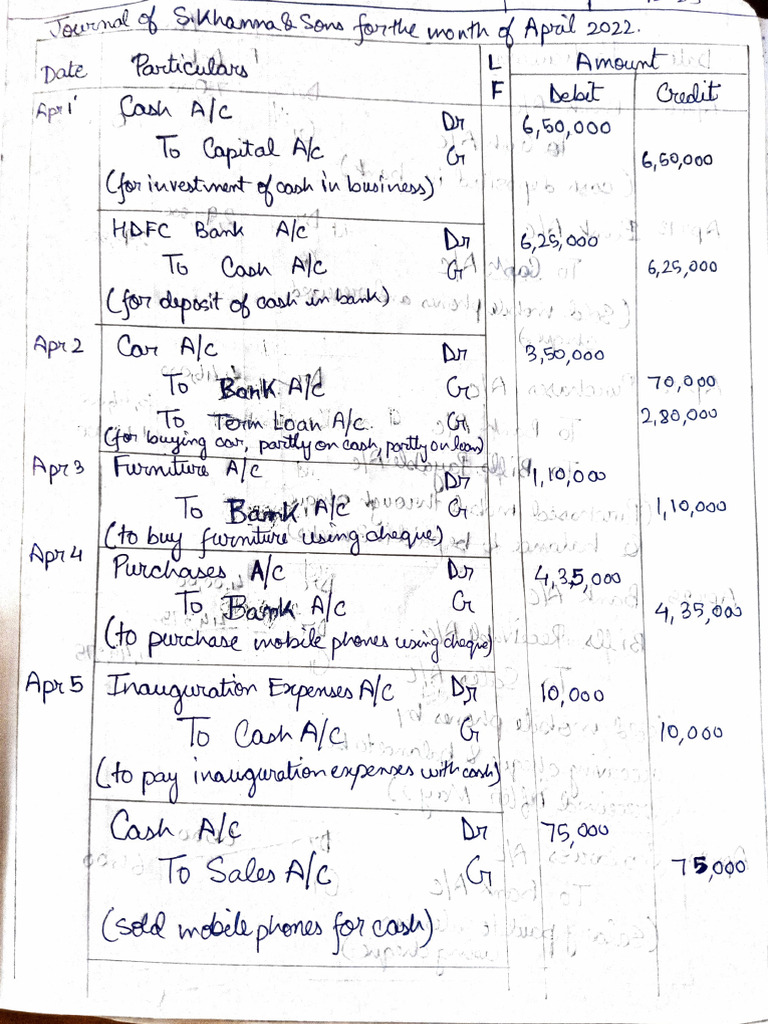 Journal of S.Khanna & Sons for the month of April 2022.
Date Particulars L F Amount
Debit Credit
Apr 1 Cash A/c Dr 6,50,000
To Capital A/c Cr 6,50,000
(for investment of cash in business)
HDFC Bank A/c Dr 6,25,000
To Cash A/c Cr 6,25,000
(for deposit of cash in bank)
Apr 2 Car A/c Dr 3,50,000
To Bank A/c Cr 70,000
To Term Loan A/c. Cr 2,80,000
(for buying car, partly on cash, partly on loan)
Apr 3 Furniture A/c Dr 1,10,000
To Bank A/c Cr 1,10,000
(to buy furniture using cheque)
Apr 4 Purchases A/c Dr 4,35,000
To Bank A/c Cr 4,35,000
(to purchase mobile phones using cheque)
Apr 5 Inauguration Expenses A/c Dr 10,000
To Cash A/c Cr 10,000
(to pay inauguration expenses with cash)
Cash A/c Dr 75,000
To Sales A/c Cr 75,000
(sold mobile phones for cash)